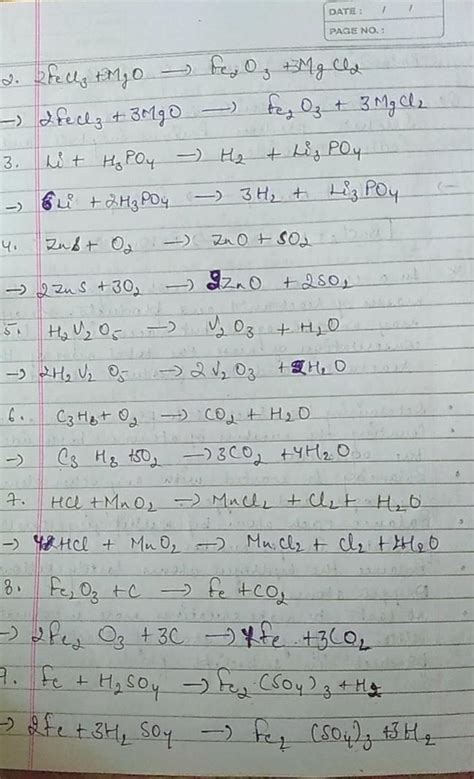 DATE : / /
PAGE NO. :
2. 2FeCl3 + MgO → Fe2O3 + 3MgCl2
→ 2FeCl3 + 3MgO → Fe2O3 + 3MgCl2
3. Li + H3PO4 → H2 + Li3PO4
→ 6Li + 2H3PO4 → 3H2 + Li3PO4
4. ZnS + O2 → ZnO + SO2
→ 2ZnS + 3O2 → 2ZnO + 2SO2
5. H2V2O5 → V2O3 + H2O
→ 2H2V2O5 → 2V2O3 + 2H2O
6. C3H8 + O2 → CO2 + H2O
→ C3H8 + 5O2 → 3CO2 + 4H2O
7. HCl + MnO2 → MnCl2 + Cl2 + H2O
→ 4HCl + MnO2 → MnCl2 + Cl2 + 2H2O
8. Fe2O3 + C → Fe + CO2
→ 2Fe2O3 + 3C → 4Fe + 3CO2
9. Fe + H2SO4 → Fe2(SO4)3 + H2
→ 2Fe + 3H2SO4 → Fe2(SO4)3 + 3H2